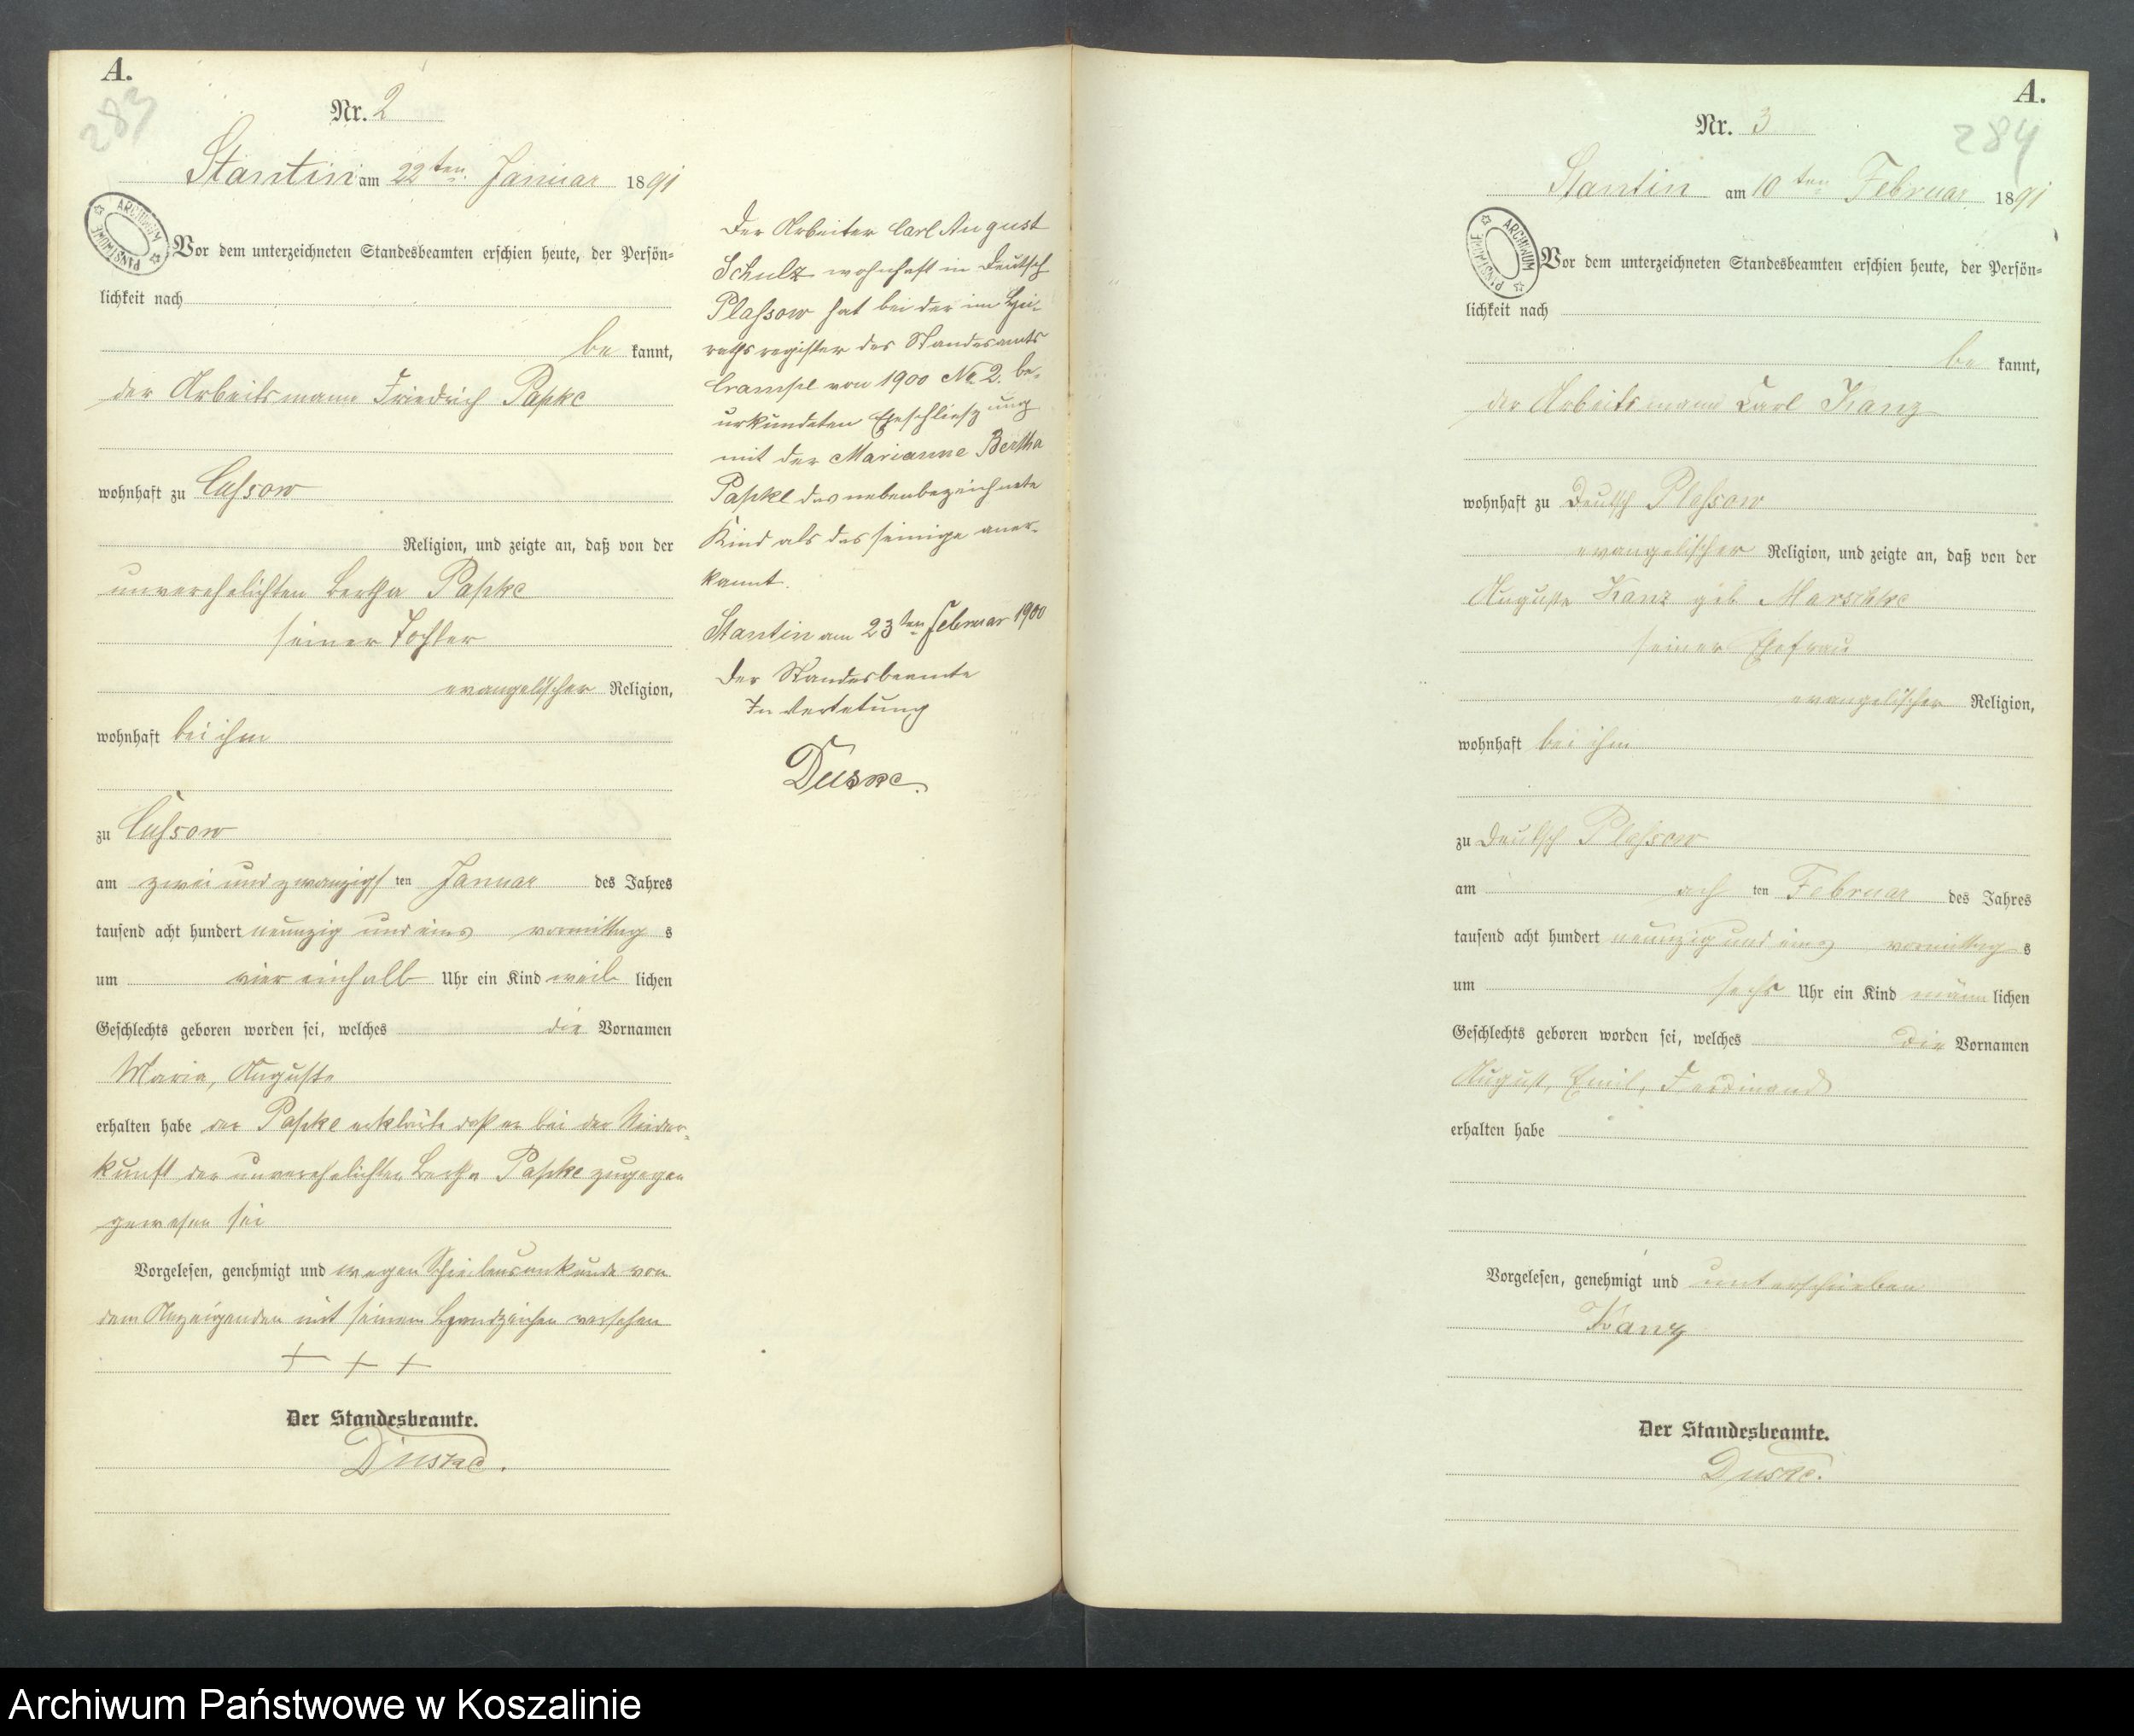 A.
283
Nr. 2
Stantin am 22ten Januar 1891
ARCHIWUM PAŃSTWOWE
Vor dem unterzeichneten Standesbeamten erschien heute, der Persön-
lichkeit nach
be kannt,
der Arbeitsmann Friedrich Papke
wohnhaft zu Cussow
Religion, und zeigte an, daß von der
unverehelichten Bertha Papke
seiner Tochter
evangelischer Religion,
wohnhaft bei ihm
zu Cussow
am zwei und zwanzigs ten Januar des Jahres
tausend acht hundert neunzig und eins vormittag s
um vier einhalb Uhr ein Kind weib lichen
Geschlechts geboren worden sei, welches die Vornamen
Maria, Auguste
erhalten habe der Papke erklärte daß er bei der Nieder-
kunft der unverehelichten Bertha Papke zugegen
gewesen sei
Vorgelesen, genehmigt und wegen Schreibensunkunde von
dem Anzeigenden mit seinem Handzeichen versehen
+ + +
Der Standesbeamte.
Duske.
Der Arbeiter Carl August
Schulz wohnhaft in Deutsch
Plassow hat bei der im Hei-
rathsregister des Standesamts
Crampe von 1900 No 2. be-
urkundeten Eheschließung
mit der Marianne Bertha
Papke das nebenbezeichnete
Kind als das seinige aner-
kannt.
Stantin am 23ten Februar 1900
Der Standesbeamte
In Vertetung
Duske.
A.
284
Nr. 3
Stantin am 10ten Februar 1891
ARCHIWUM PAŃSTWOWE
Vor dem unterzeichneten Standesbeamten erschien heute, der Persön-
lichkeit nach
be kannt,
der Arbeitsmann Carl Kanz
wohnhaft zu Deutsch Plassow
evangelischer Religion, und zeigte an, daß von der
Auguste Kanz geb Marschke
seiner Ehefrau
evangelischer Religion,
wohnhaft bei ihm
zu Deutsch Plassow
am ach ten Februar des Jahres
tausend acht hundert neunzig und eins vormittag s
um sechs Uhr ein Kind männ lichen
Geschlechts geboren worden sei, welches die Vornamen
August, Emil, Ferdinand
erhalten habe
Vorgelesen, genehmigt und unterschrieben
Kanz
Der Standesbeamte.
Duske.
Archiwum Państwowe w Koszalinie